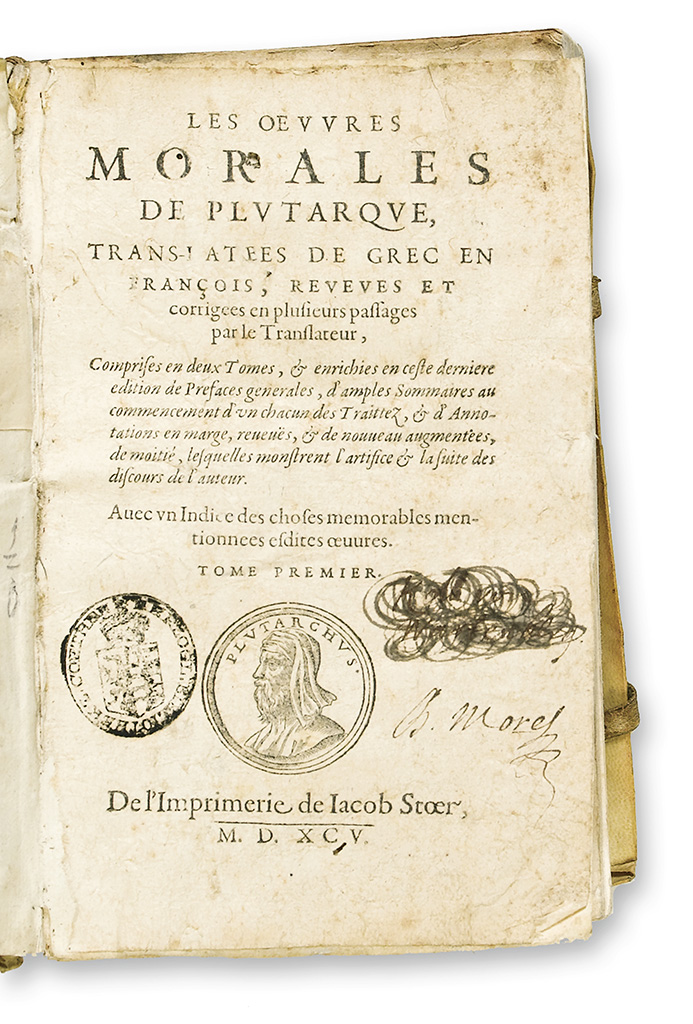 LES OEVVRES
MORALES
DE PLVTARQVE,
TRANSLATEES DE GREC EN
FRANÇOIS, REVEVES ET
corrigees en pluſieurs paſſages
par le Tranſlateur,
Compriſes en deux Tomes, & enrichies en ceſte derniere
edition de Prefaces generales, d'amples Sommaires au
commencement d'vn chacun des Traittez, & d'Anno-
tations en marge, reueuës, & de nouueau augmentees,
de moitié, leſquelles monſtrent l'artifice & la ſuite des
diſcours de l'auteur.
Auec vn Indice des choſes memorables men-
tionnees eſdites œuures.
TOME PREMIER.
PLVTARCHVS.
B. Morel
De l'Imprimerie de Iacob Stœr,
M. D. XCV.